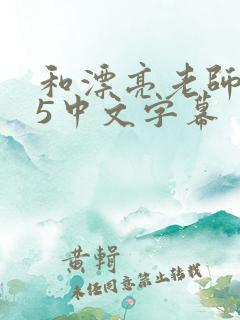 和漂亮老師
5中文字幕
黄輯
未经同意禁止转载